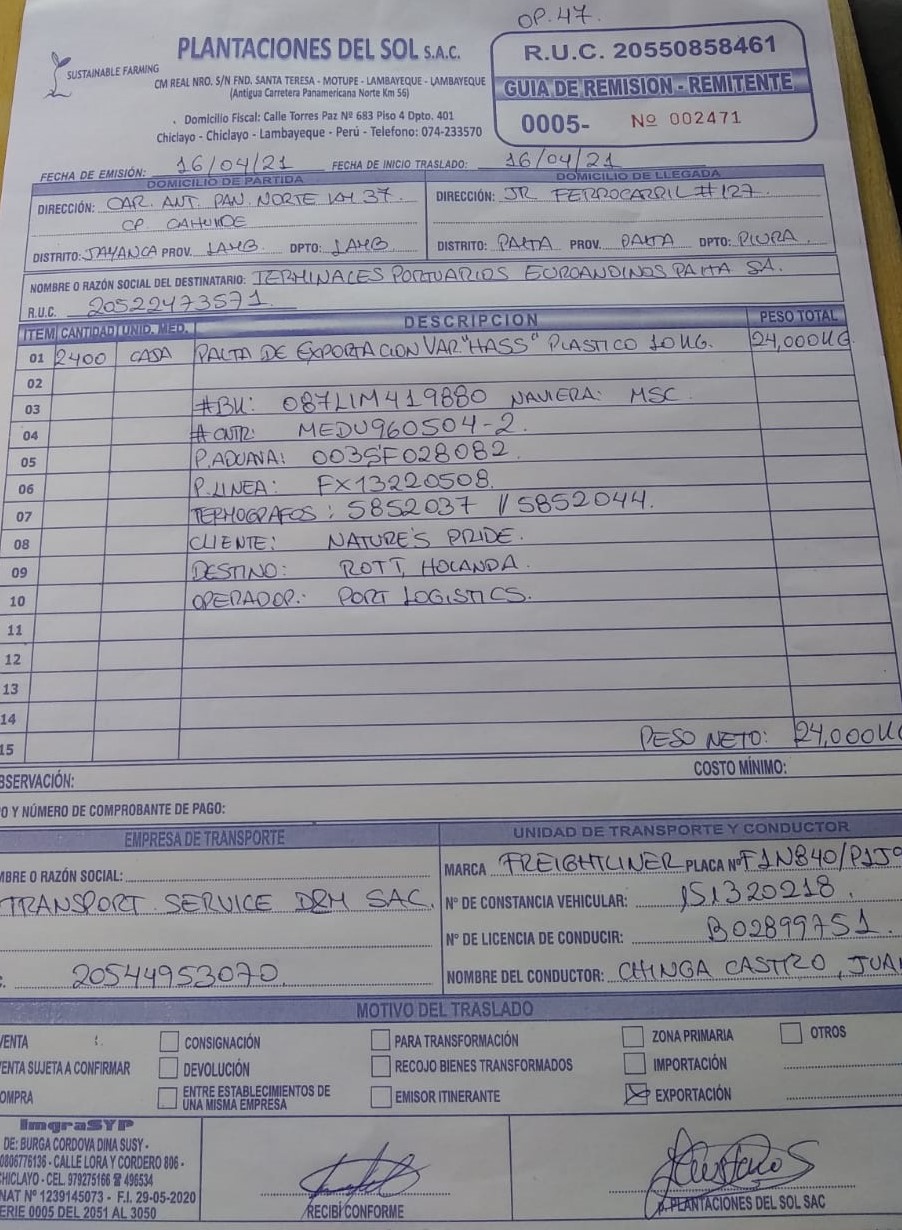 OP. 47.
SUSTAINABLE FARMING
PLANTACIONES DEL SOL S.A.C.
CM REAL NRO. S/N FND. SANTA TERESA - MOTUPE - LAMBAYEQUE - LAMBAYEQUE
(Antigua Carretera Panamericana Norte Km 56)
Domicilio Fiscal: Calle Torres Paz Nº 683 Piso 4 Dpto. 401
Chiclayo - Chiclayo - Lambayeque - Perú - Telefono: 074-233570
R.U.C. 20550858461
GUIA DE REMISION - REMITENTE
0005- Nº 002471
FECHA DE EMISIÓN: 16/04/21 FECHA DE INICIO TRASLADO: 16/04/21
DOMICILIO DE PARTIDA
DIRECCIÓN: CAR. ANT. PAN. NORTE KM 37.
CP. CAHUIDE
DISTRITO: JAYANCA PROV. LAMB. DPTO: LAMB
DOMICILIO DE LLEGADA
DIRECCIÓN: JR FERROCARRIL #127
DISTRITO: PAITA PROV. PAITA DPTO: PIURA
NOMBRE O RAZÓN SOCIAL DEL DESTINATARIO: TERMINALES PORTUARIOS EUROANDINOS PAITA SA.
R.U.C. 20522473571.
ITEM CANTIDAD UNID. MED. DESCRIPCION PESO TOTAL
01 2400 CAJA PALTA DE EXPORTACION VAR "HASS" PLASTICO 10 KG. 24,000KG
02
03 #BK: 087LIM419880 NAVIERA: MSC
04 # CNTR: MEDU960504-2.
05 P.ADUANA: 0035F028082.
06 P.LINEA: FX13220508.
07 TERMOGRAFOS: 5852037 // 5852044.
08 CLIENTE: NATURE'S PRIDE.
09 DESTINO: ROTT, HOLANDA.
10 OPERADOR.: PORT LOGISTICS.
11
12
13
14
15 PESO NETO: 24,000K
COSTO MÍNIMO:
BSERVACIÓN:
O Y NÚMERO DE COMPROBANTE DE PAGO:
EMPRESA DE TRANSPORTE
MBRE O RAZÓN SOCIAL:
TRANSPORT SERVICE D&M SAC.
20544953070
UNIDAD DE TRANSPORTE Y CONDUCTOR
MARCA FREIGHTLINER PLACA Nº F1N840/P1J9
Nº DE CONSTANCIA VEHICULAR: 151320218.
Nº DE LICENCIA DE CONDUCIR: B02899751.
NOMBRE DEL CONDUCTOR: CHINGA CASTRO, JUA
MOTIVO DEL TRASLADO
VENTA CONSIGNACIÓN PARA TRANSFORMACIÓN ZONA PRIMARIA OTROS
ENTA SUJETA A CONFIRMAR DEVOLUCIÓN RECOJO BIENES TRANSFORMADOS IMPORTACIÓN
OMPRA ENTRE ESTABLECIMIENTOS DE UNA MISMA EMPRESA EMISOR ITINERANTE EXPORTACIÓN
ImgraSYP
DE: BURGA CORDOVA DINA SUSY -
0806776136 - CALLE LORA Y CORDERO 806 -
HICLAYO - CEL. 979275166 ☎ 496534
NAT Nº 1239145073 - F.I. 29-05-2020
ERIE 0005 DEL 2051 AL 3050
RECIBÍ CONFORME
p. PLANTACIONES DEL SOL SAC